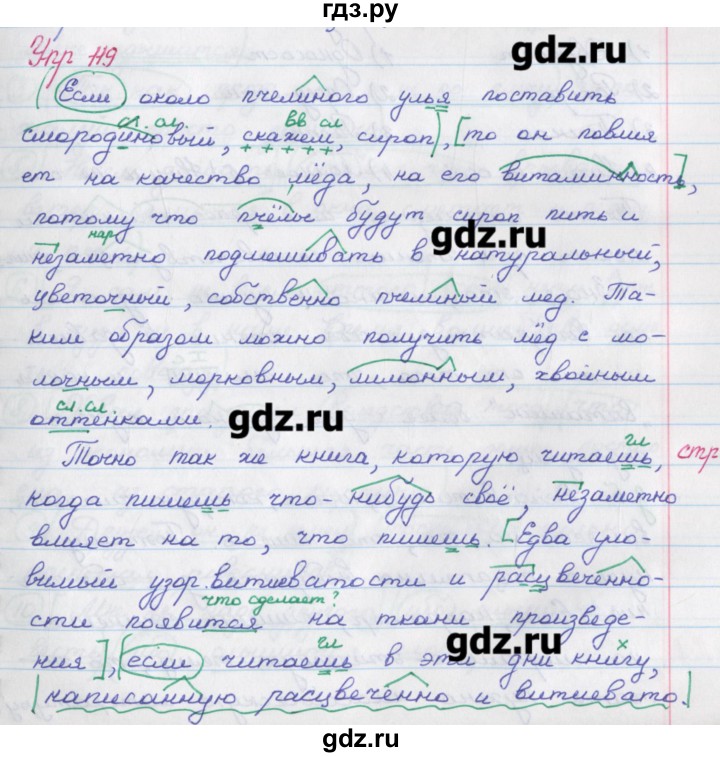 гдз.ру
gdz.ru
Упр 119
(Если около пчелиного улья поставить
сл. сл.
вв сл
смородиновый, скажем, сироп), [то он повлия
ет на качество мёда, на его витаминность],
потому что пчёлы будут сироп пить и
gdz.ru
нар
незаметно подмешивать в натуральный,
цветочный, собственно пчелиный мед. Та-
ким образом можно получить мёд с мо-
лочным, морковным, лимонным, хвойным
сл. сл.
оттенками.
gdz.ru
гл
Точно так же книга, которую читаешь, стр
когда пишешь что-нибудь своё, незаметно
влияет на то, что пишешь. [Едва уло-
вимый узор витиеватости и расцвеченно-
что сделает?
сти появится на ткани произведе-
gdz.ru
гл
х
ния], (если читаешь в эти дни книгу,
|написанную расцвеченно и витиевато.|
gdz.ru